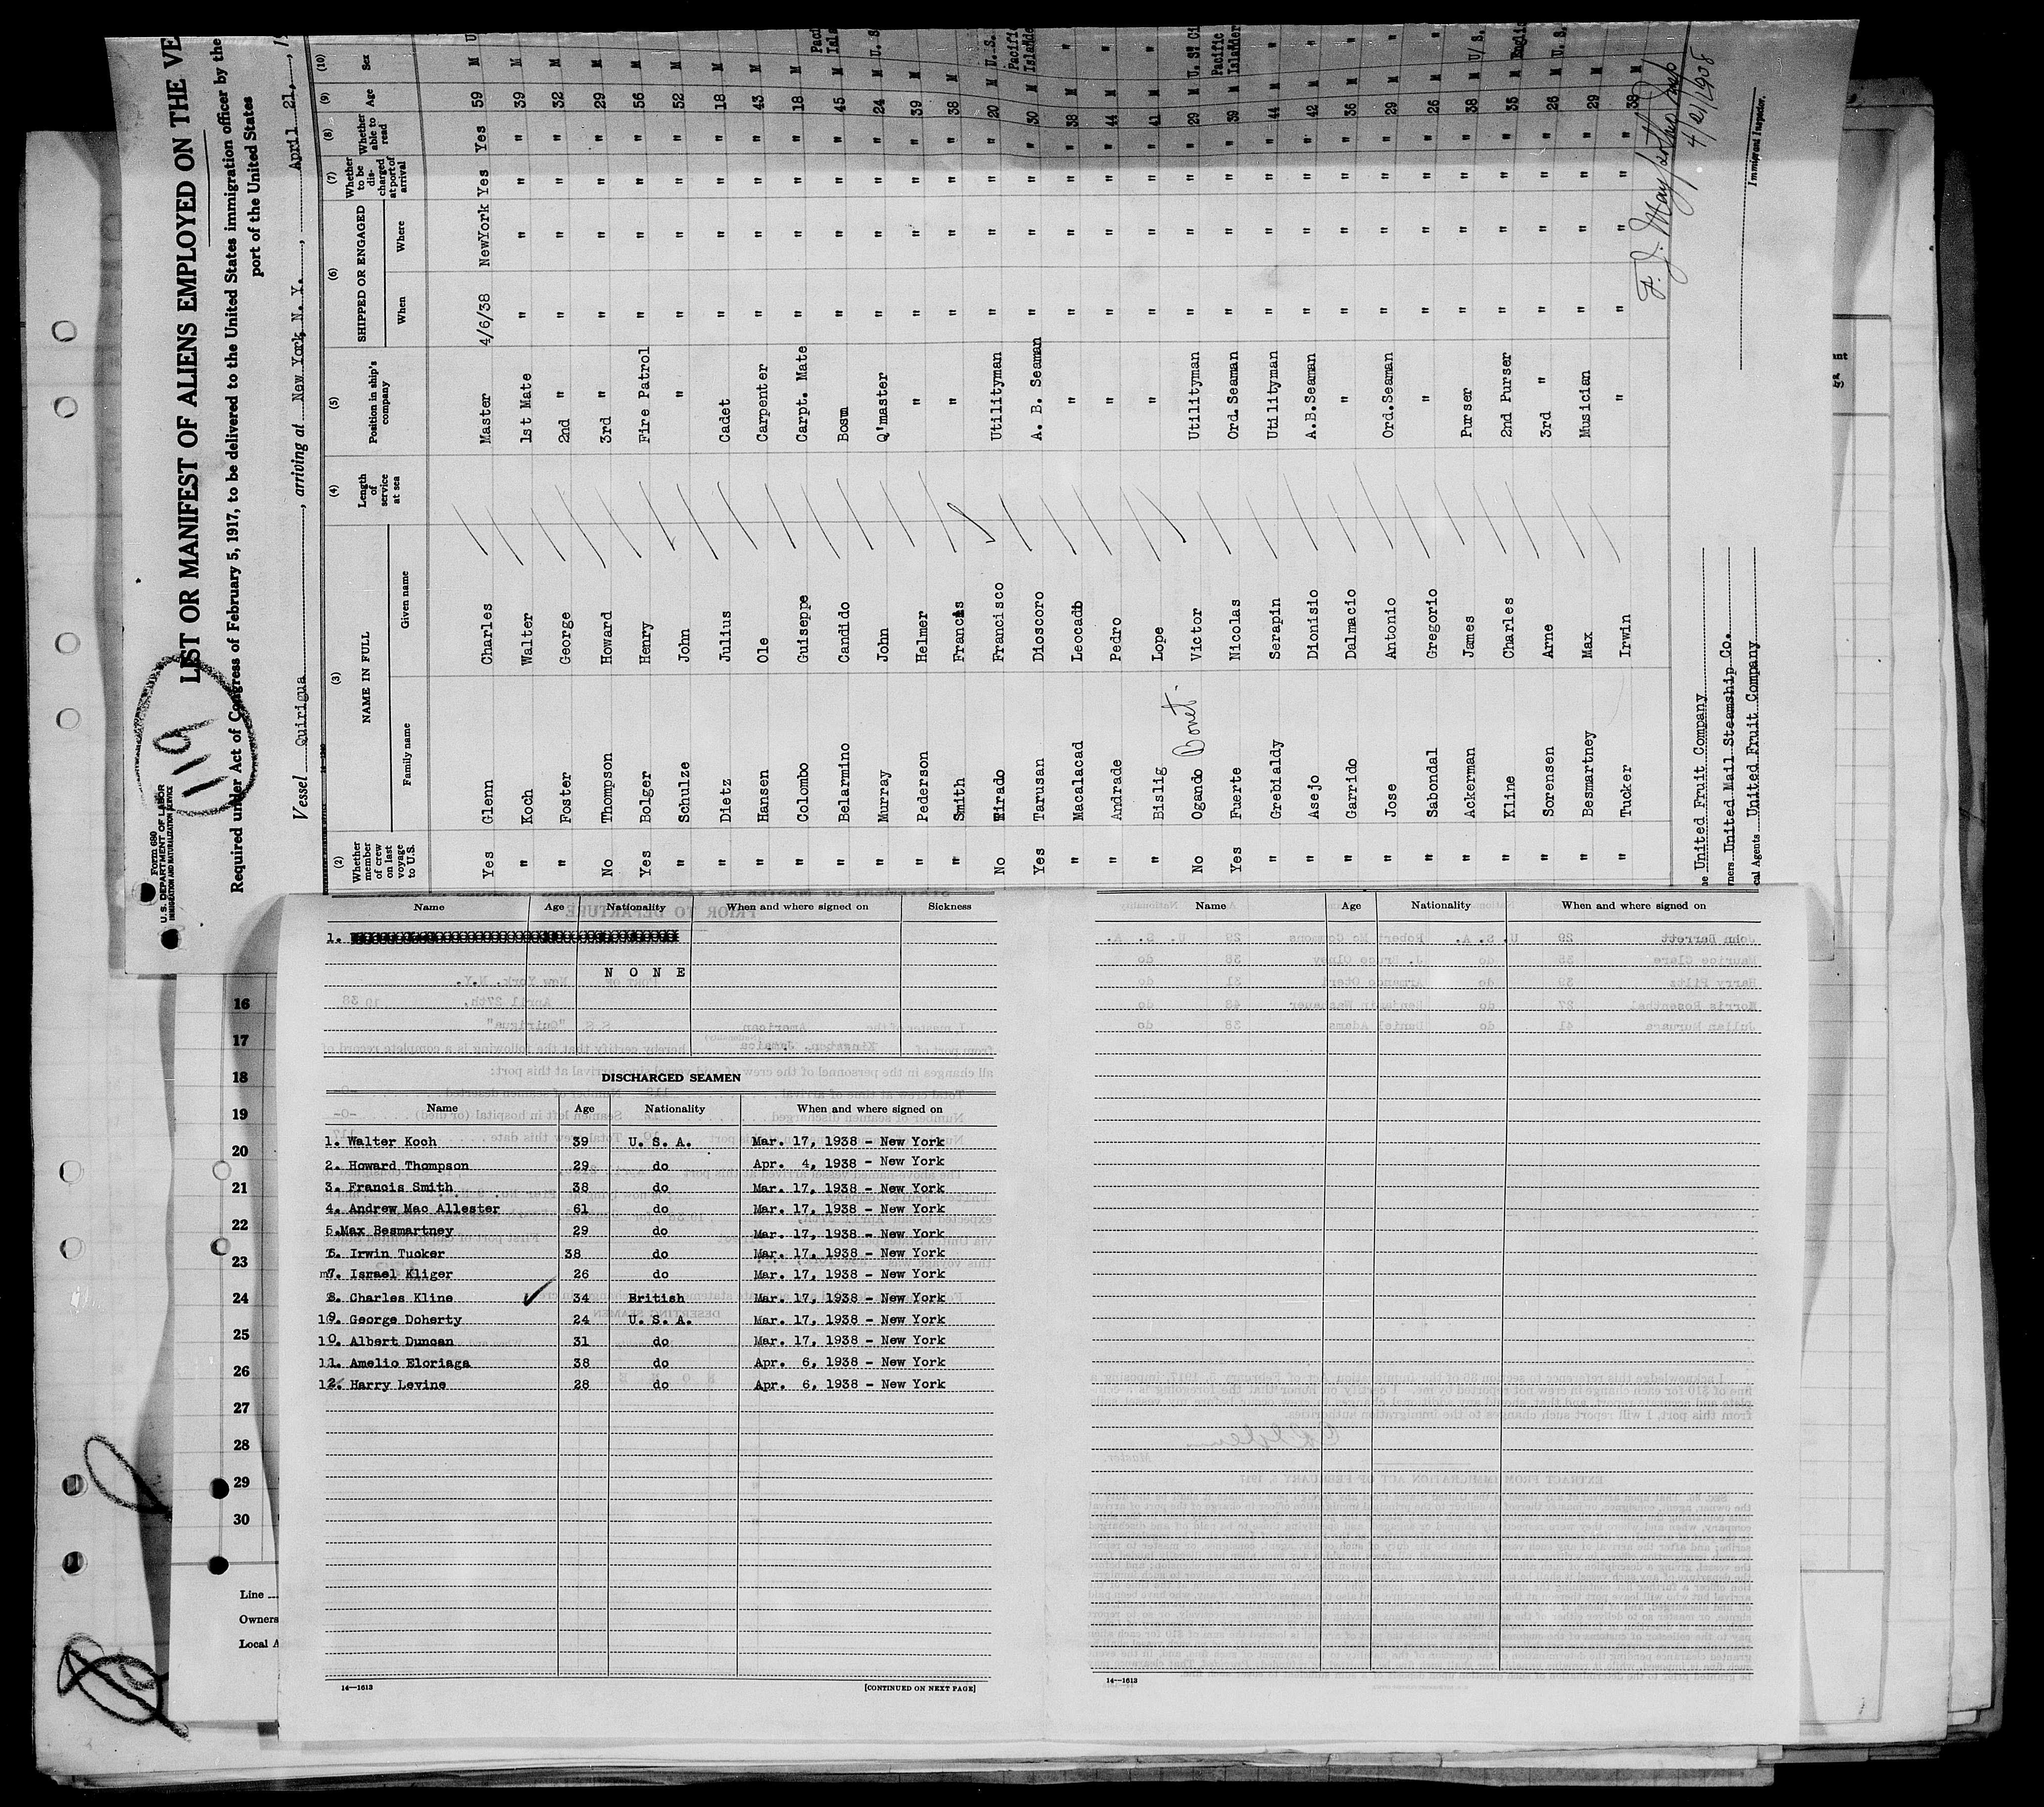 Form 680
U. S. DEPARTMENT OF LABOR
IMMIGRATION AND NATURALIZATION SERVICE
119
LIST OR MANIFEST OF ALIENS EMPLOYED ON THE VE
Required under Act of Congress of February 5, 1917, to be delivered to the United States immigration officer by the
port of the United States
Vessel Quirigua, arriving at New York, N. Y., April 21,
(2) (3) (4) (5) (6) (7) (8) (9) (10)
Whether member of crew on last voyage to U.S. NAME IN FULL Family name Given name Length of service at sea Position in ship's company SHIPPED OR ENGAGED When Where Whether to be discharged at port of arrival Whether able to read Age Sex
Yes Glenn Charles Master 4/6/38 NewYork Yes Yes 59 M U
" Koch Walter 1st Mate " " " " 39 M
" Foster George 2nd " " " " " 32 M
No Thompson Howard 3rd " " " " " 29 M
Yes Bolger Henry Fire Patrol " " " " 56 M
" Schulze John " " " " " 52 M
" Dietz Julius Cadet " " " " 18 M
" Hansen Ole Carpenter " " " " 43 M
" Colombo Guiseppe Carpt. Mate " " " " 18 M
" Belarmino Candido Bosun " " " " 45 M
" Murray John Q'master " " " " 24 M U. S.
" Pederson Helmer " " " " " 39 M
" Smith Francis " " " " " 38 M
No Tirado Francisco Utilityman " " " " 20 M U. S.
Yes Tarusan Dioscoro A. B. Seaman " " " " 30 M Pacific Islander
" Macalacad Leocadio " " " " " 38 M "
" Andrade Pedro " " " " " 44 M "
" Bislig Lope " " " " " 41 M "
No Ogando Bonet. Victor Utilityman " " " " 29 M U. S. Ci
Yes Fuerte Nicolas Ord. Seaman " " " " 39 M Pacific Islander
" Grebialdy Serapin Utilityman " " " " 44 M "
" Asejo Dionisio A.B.Seaman " " " " 42 M "
" Garrido Dalmacio " " " " " 36 M "
" Jose Antonio Ord.Seaman " " " " 29 M "
" Sabondal Gregorio " " " " " 26 M "
" Ackerman James Purser " " " " 38 M U/ S.
" Kline Charles 2nd Purser " " " " 35 M Engli
" Sorensen Arne 3rd " " " " " 26 M U. S.
" Besmartney Max Musician " " " " 29 M "
" Tucker Irwin " " " " " 38 M
4/21/1938
Immigrant Inspector.
United Fruit Company
ners United Mail Steamship Co.
cal Agents United Fruit Company
Name Age Nationality When and where signed on Sickness
1.
N O N E
DISCHARGED SEAMEN
Name Age Nationality When and where signed on
1. Walter Koch 39 U. S. A. Mar. 17, 1938 - New York
2. Howard Thompson 29 do Apr. 4, 1938 - New York
3. Francis Smith 38 do Mar. 17, 1938 - New York
4. Andrew Mac Allester 61 do Mar. 17, 1938 - New York
5.Max Besmartney 29 do Mar. 17, 1938 - New York
6. Irwin Tucker 38 do Mar. 17, 1938 - New York
7. Israel Kliger 26 do Mar. 17, 1938 - New York
8. Charles Kline 34 British Mar. 17, 1938 - New York
9. George Doherty 24 U. S. A. Mar. 17, 1938 - New York
10. Albert Duncan 31 do Mar. 17, 1938 - New York
11. Amelio Eloriaga 38 do Apr. 6, 1938 - New York
12. Harry Levine 28 do Apr. 6, 1938 - New York
14—1613
[CONTINUED ON NEXT PAGE]
Name Age Nationality When and where signed on
14—1613
16
17
18
19
20
21
22
23
24
25
26
27
28
29
30
Line
Owners
Local A